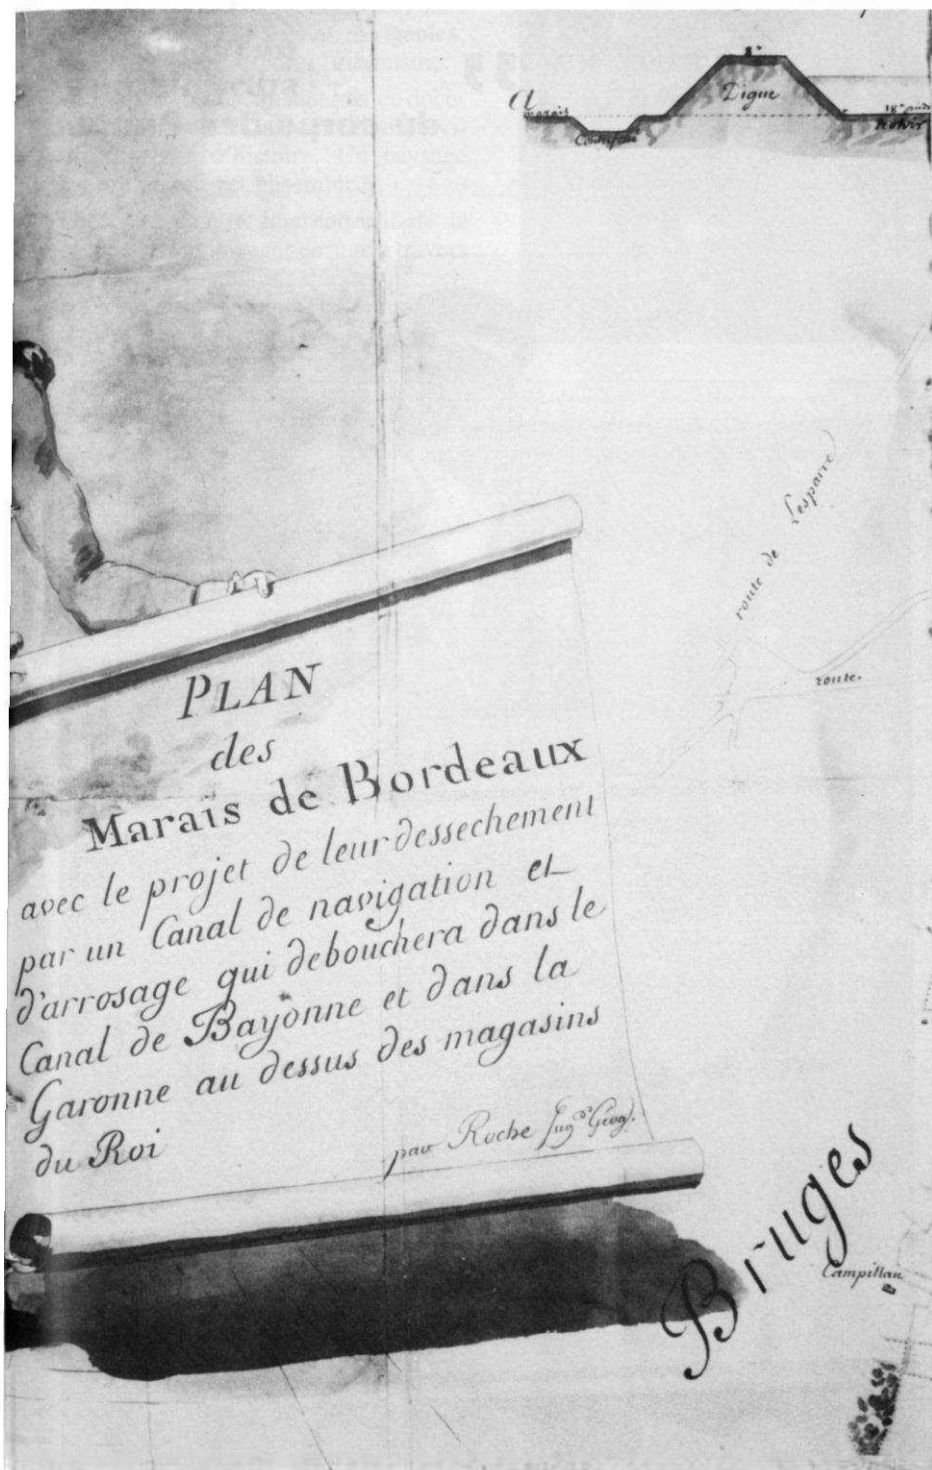 a
Digue
marais
route de Lesparre
route.
PLAN
des
Marais de Bordeaux
avec le projet de leur dessechement
par un Canal de navigation et
d'arrosage qui debouchera dans le
Canal de Bayonne et dans la
Garonne au dessus des magasins
du Roi
par Roche Ing.r Géog.
Bruges
Campillau